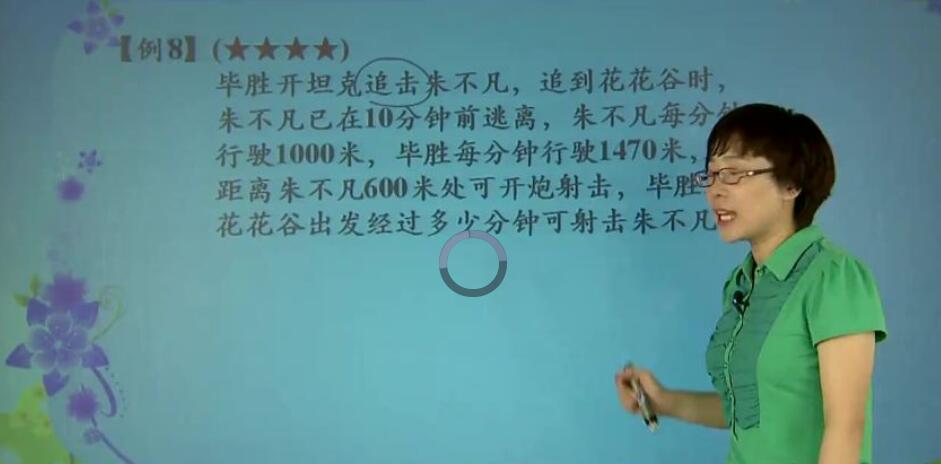 【例8】(★★★★)
毕胜开坦克追击朱不凡，追到花花谷时，
朱不凡已在10分钟前逃离，朱不凡每分钟
行驶1000米，毕胜每分钟行驶1470米，
距离朱不凡600米处可开炮射击，毕胜
花花谷出发经过多少分钟可射击朱不凡